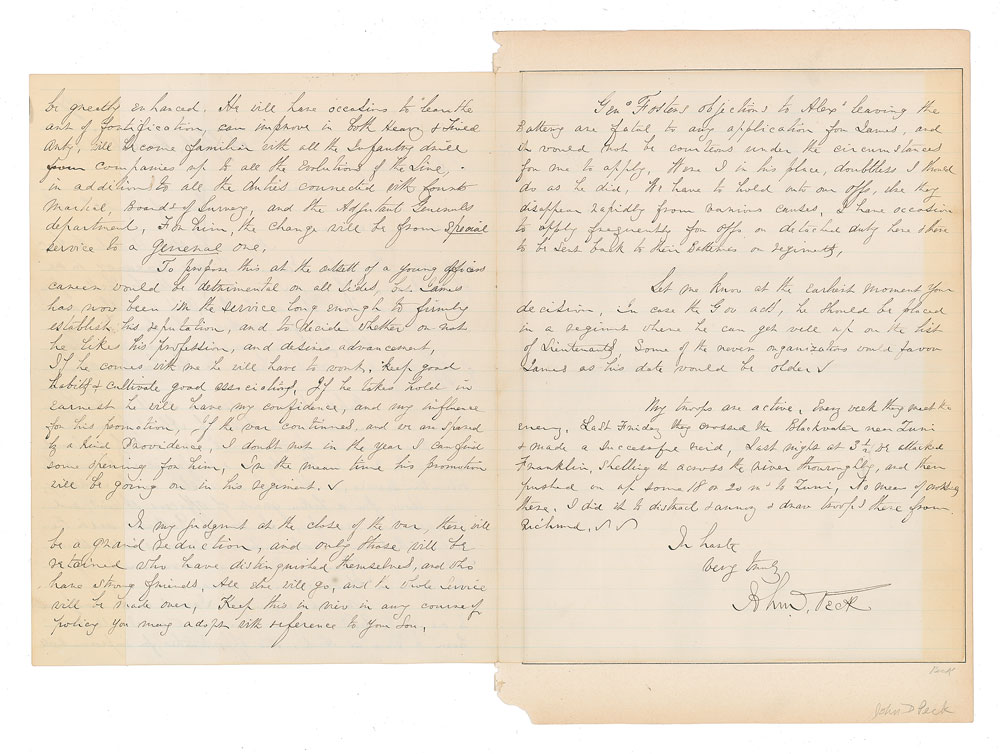 be greatly enhanced. He will have occasions to learn the
art of fortification, can improve in both Heavy & Field
Arty, will become familiar with all the Infantry drill
from companies up to all the Evolutions of the Line,
in addition to all the duties connected with Courts
Martial, Boards of Survey, and the Adjutant Generals
department, For him, the change will be from special
service to a General one,
To propose this at the outset of a young officers
career would be detrimental on all sides, but James
has now been in the service long enough to firmly
establish his reputation, and to decide whether or not
he likes his profession, and desires advancement,
If he comes with me he will have to work, keep good
habits & cultivate good associations, If he takes hold in
earnest he will have my confidence, and my influence
for his promotion, If the war continues, and we are spared
by a kind Providence, I doubt not in the year I can find
some opening for him, In the mean time his promotion
will be going on in his regiment.
In my judgment at the close of the war, there will
be a grand reduction, and only those will be
retained who have distinguished themselves, and who
have strong friends, All else will go, and the whole service
will be made over, Keep this in view in any course of
policy you may adopt with reference to your Son,
Genl Fosters objections to Alexr leaving the
Battery are fatal to any application for James, and
it would not be courteous under the circumstances
for me to apply, Were I in his place, doubtless I should
do as he did, We have to hold onto our offs, else they
disappear rapidly from various causes, I have occasion
to apply frequently for offs. on detached duty here & there
to be sent back to their Batteries or regiments,
Let me know at the earliest moment your
decision, In case the Gov act, he should be placed
in a regiment where he can get well up on the list
of Lieutenants, Some of the newer organizations would favor
James as his date would be older
My troops are active, Every week they meet the
enemy, Last Friday they crossed the Blackwater near Zuni
& made a successful raid, Last night at 3½ we attacked
Franklin, shelling it across the river thoroughly, and then
pushed on up some 18 or 20 ms to Zuni, No mean of crossing
there, I did it to distract & annoy & draw troops there from
Richmd,
In haste
Very truly
John J. Peck
Peck
John D Peck